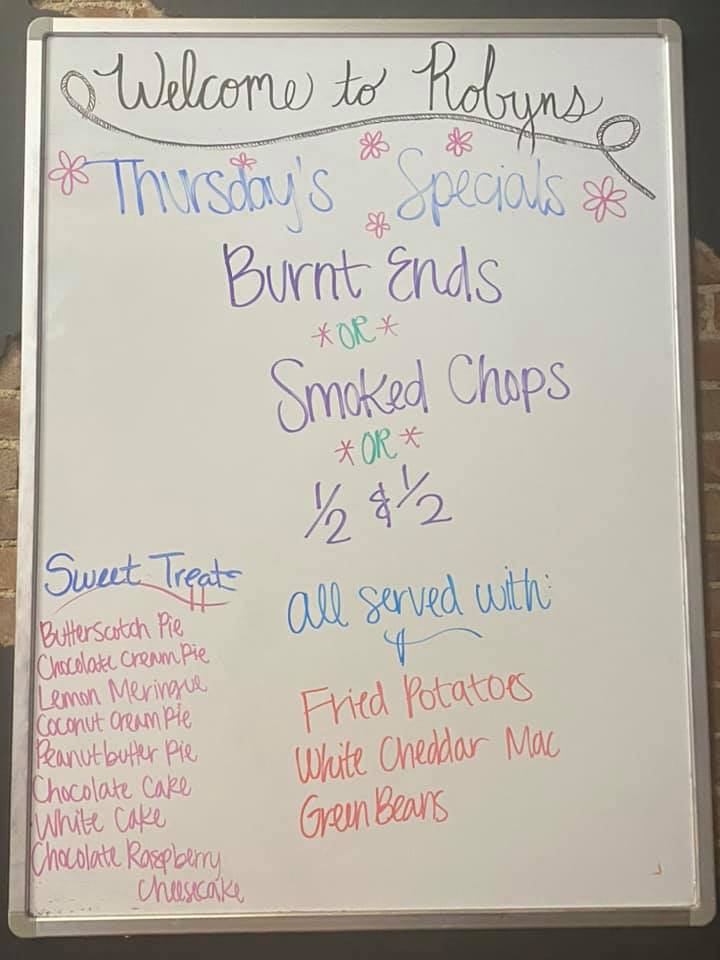 Welcome to Robyns
Thursday's Specials
Burnt Ends
*OR*
Smoked Chops
*OR*
1/2 & 1/2
Sweet Treats
Butterscotch Pie
Chocolate Cream Pie
Lemon Meringue
Coconut Cream Pie
Peanutbutter Pie
Chocolate Cake
White Cake
Chocolate Raspberry
Cheesecake
all served with:
Fried Potatoes
White Cheddar Mac
Green Beans